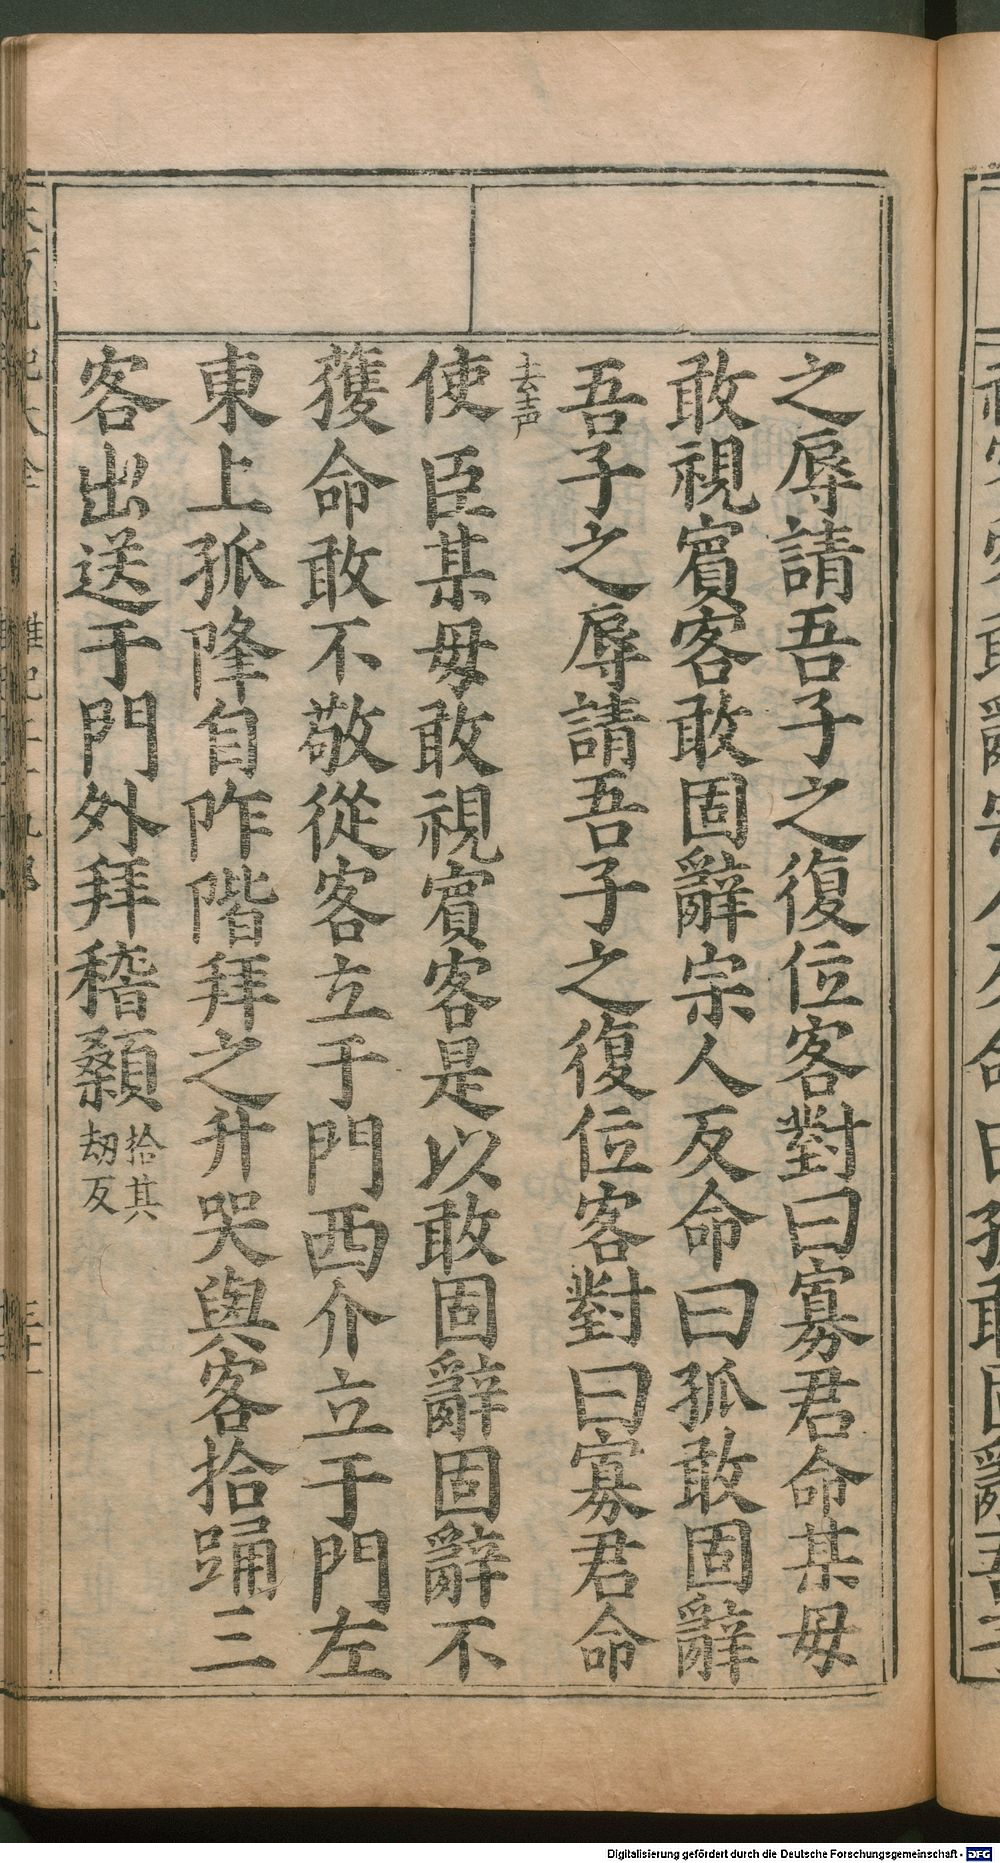 之辱請吾子之復位客對曰寡君命某毋
敢視賓客敢固辭宗人反命曰孤敢固辭
吾子之辱請吾子之復位客對曰寡君命
去声
使臣某毋敢視賓客是以敢固辭固辭不
獲命敢不敬從客立于門西介立于門左
東上孤降自阼階拜之升哭與客拾踊三
客出送于門外拜稽顙
拾其
劫反
Digitalisierung gefördert durch die Deutsche Forschungsgemeinschaft - DFG